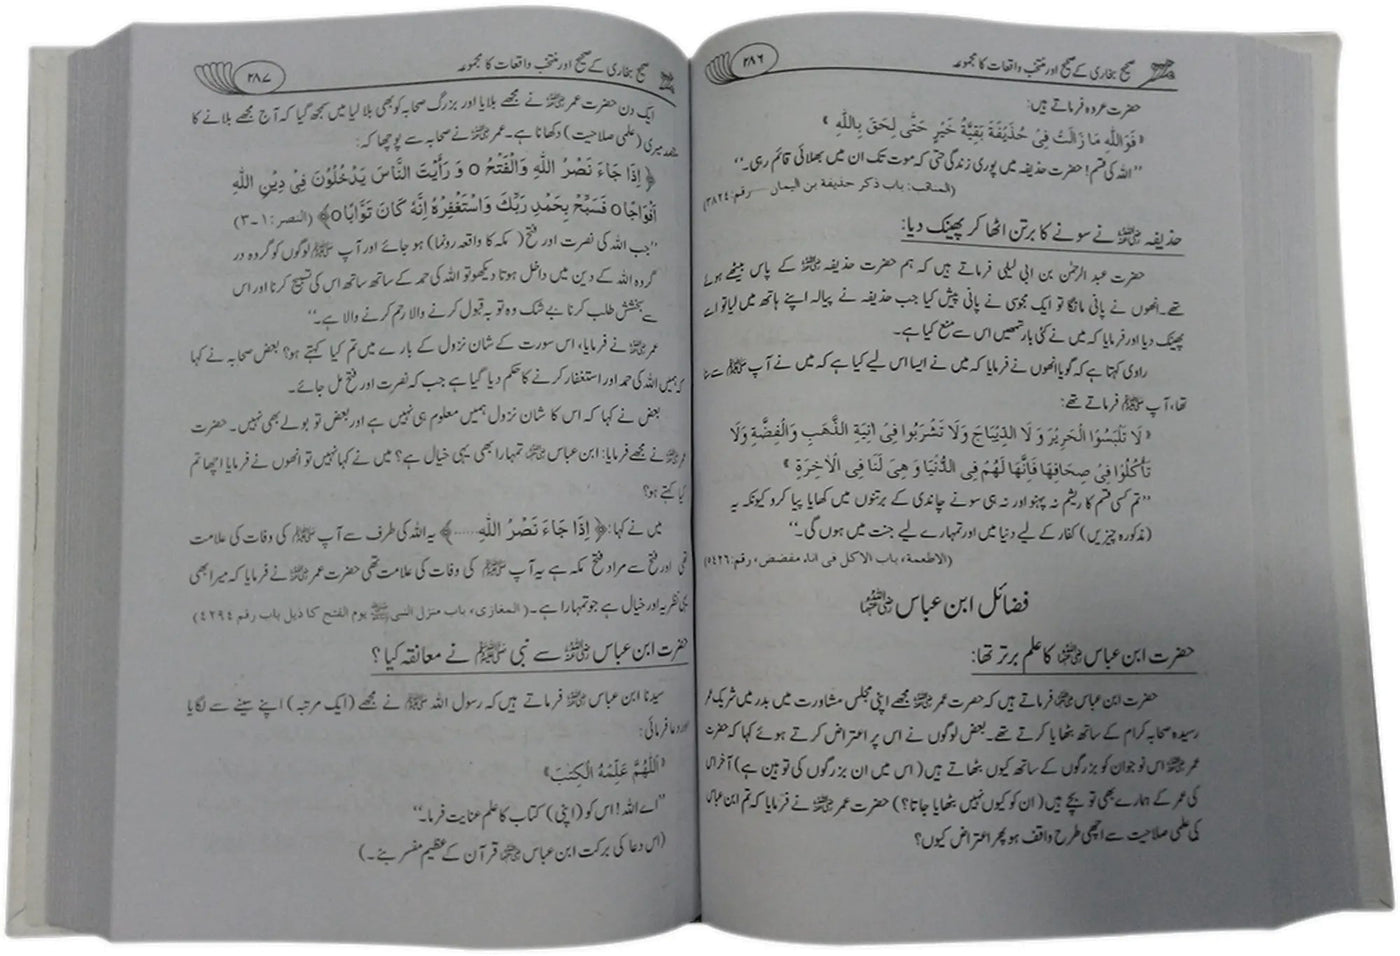 صحیح بخاری کے صحیح اور منتخب واقعات کا مجموعہ ۲۸۶
حضرت عروہ فرماتے ہیں:
« فَوَاللّٰهِ مَا زَالَتْ فِیْ حُذَیْفَةَ بَقِیَّةُ خَیْرٍ حَتّٰی لِحَقَ بِاللّٰهِ »
’’اللہ کی قسم! حضرت حذیفہ میں پوری زندگی حتی کہ موت تک ان میں بھلائی قائم رہی۔‘‘
(المناقب: باب ذکر حذیفة بن الیمان — رقم:۳۸۲۴)
حذیفہ رضی اللہ عنہ نے سونے کا برتن اٹھا کر پھینک دیا:
حضرت عبد الرحمٰن بن ابی لیلی فرماتے ہیں کہ ہم حضرت حذیفہ رضی اللہ عنہ کے پاس بیٹھے ہوئے
تھے۔ انھوں نے پانی مانگا تو ایک مجوسی نے پانی پیش کیا جب حذیفہ نے پیالہ اپنے ہاتھ میں لیا تو اسے
پھینک دیا اور فرمایا کہ میں نے کئی بار تمھیں اس سے منع کیا ہے۔
راوی کہتا ہے کہ گویا انھوں نے فرمایا کہ میں نے ایسا اس لیے کیا ہے کہ میں نے آپ ﷺ سے سنا
تھا، آپ ﷺ فرماتے تھے:
« لَا تَلْبَسُوا الْحَرِیْرَ وَ لَا الدِّیْبَاجَ وَلَا تَشْرَبُوا فِیْ اٰنِیَةِ الذَّهَبِ وَالْفِضَّةِ وَلَا
تَأْکُلُوْا فِیْ صِحَافِهَا فَاِنَّهَا لَهُمْ فِی الدُّنْیَا وَ هِیَ لَنَا فِی الْاٰخِرَةِ »
’’تم کسی قسم کا ریشم نہ پہنو اور نہ ہی سونے چاندی کے برتنوں میں کھایا پیا کرو کیونکہ یہ
(مذکورہ چیزیں) کفار کے لیے دنیا میں اور تمہارے لیے جنت میں ہوں گی۔‘‘
(الاطعمة، باب الاکل فی اناء مفضض، رقم:۵۴۲۶)
فضائل ابن عباس رضی اللہ عنہما
حضرت ابن عباس رضی اللہ عنہما کا علم برتر تھا:
حضرت ابن عباس رضی اللہ عنہما فرماتے ہیں کہ حضرت عمر رضی اللہ عنہ مجھے اپنی مجلس مشاورت میں بدر میں شریک عمر
رسیدہ صحابہ کرام کے ساتھ بٹھایا کرتے تھے۔ بعض لوگوں نے اس پر اعتراض کرتے ہوئے کہا کہ حضرت
عمر رضی اللہ عنہ اس نوجوان کو بزرگوں کے ساتھ کیوں بٹھاتے ہیں (اس میں ان بزرگوں کی توہین ہے) آخر اس
کی عمر کے ہمارے بھی تو بچے ہیں (ان کو کیوں نہیں بٹھایا جاتا؟) حضرت عمر رضی اللہ عنہ نے فرمایا کہ تم ابن عباس
کی علمی صلاحیت سے اچھی طرح واقف ہو پھر اعتراض کیوں؟
صحیح بخاری کے صحیح اور منتخب واقعات کا مجموعہ ۲۸۷
ایک دن حضرت عمر رضی اللہ عنہ نے مجھے بلایا اور بزرگ صحابہ کو بھی بلا لیا میں سمجھ گیا کہ آج مجھے بلانے کا
مقصد میری (علمی صلاحیت) دکھانا ہے۔ عمر رضی اللہ عنہ نے صحابہ سے پوچھا کہ:
﴿ اِذَا جَاءَ نَصْرُ اللّٰهِ وَالْفَتْحُ o وَ رَاَیْتَ النَّاسَ یَدْخُلُوْنَ فِیْ دِیْنِ اللّٰهِ
اَفْوَاجًا o فَسَبِّحْ بِحَمْدِ رَبِّكَ وَاسْتَغْفِرْهُ اِنَّهٗ کَانَ تَوَّابًا o﴾ (النصر:۱-۳)
’’جب اللہ کی نصرت اور فتح (مکہ کا واقعہ رونما) ہو جائے اور آپ ﷺ لوگوں کو گروہ در
گروہ اللہ کے دین میں داخل ہوتا دیکھو تو اللہ کی حمد کے ساتھ ساتھ اس کی تسبیح کرنا اور اس
سے بخشش طلب کرنا بے شک وہ توبہ قبول کرنے والا رحم کرنے والا ہے۔‘‘
عمر رضی اللہ عنہ نے فرمایا، اس سورت کے شان نزول کے بارے میں تم کیا کہتے ہو؟ بعض صحابہ نے کہا
کہ ہمیں اللہ کی حمد اور استغفار کرنے کا حکم دیا گیا ہے جب کہ نصرت اور فتح مل جائے۔
بعض نے کہا کہ اس کا شان نزول ہمیں معلوم ہی نہیں ہے اور بعض تو بولے بھی نہیں۔ حضرت
عمر رضی اللہ عنہ نے مجھے فرمایا: ابن عباس رضی اللہ عنہما تمہارا بھی یہی خیال ہے؟ میں نے کہا نہیں تو انھوں نے فرمایا اچھا تم
کیا کہتے ہو؟
میں نے کہا: ﴿ اِذَا جَاءَ نَصْرُ اللّٰهِ......﴾ یہ اللہ کی طرف سے آپ ﷺ کی وفات کی علامت
تھی اور فتح سے مراد فتح مکہ ہے یہ آپ ﷺ کی وفات کی علامت تھی حضرت عمر رضی اللہ عنہ نے فرمایا کہ میرا بھی
یہی نظریہ اور خیال ہے جو تمہارا ہے۔ (المغازی، باب منزل النبی ﷺ یوم الفتح کا ذیل باب رقم ۴۲۹۴)
حضرت ابن عباس رضی اللہ عنہ سے نبی ﷺ نے معانقہ کیا؟
سیدنا ابن عباس رضی اللہ عنہ فرماتے ہیں کہ رسول اللہ ﷺ نے مجھے (ایک مرتبہ) اپنے سینے سے لگایا
اور دعا فرمائی:
«اَللّٰهُمَّ عَلِّمْهُ الْکِتٰبَ»
’’اے اللہ! اس کو (اپنی) کتاب کا علم عنایت فرما۔‘‘
(اس دعا کی برکت ابن عباس رضی اللہ عنہما قرآن کے عظیم مفسر بنے۔)